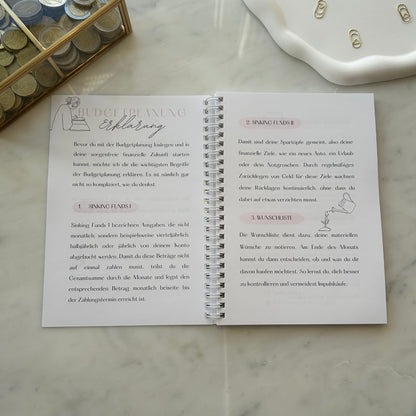 BUDGETPLANUNG
Erklärung
Bevor du mit der Budgetplanung loslegen und in
deine sorgenfreie finanzielle Zukunft starten
kannst, möchte ich dir die wichtigsten Begriffe
der Budgetplanung erklären. Es ist nämlich gar
nicht so kompliziert, wie du denkst.
1. SINKING FUNDS I
Sinking Funds I bezeichnen Ausgaben, die nicht
monatlich, sondern beispielsweise vierteljährlich,
halbjährlich oder jährlich von deinem Konto
abgebucht werden. Damit du diese Beträge nicht
auf einmal zahlen musst, teilst du die
Gesamtsumme durch die Monate und legst den
entsprechenden Betrag monatlich beiseite bis
der Zahlungstermin erreicht ist.
2. SINKING FUNDS II
Damit sind deine Spartöpfe gemeint, also deine
finanzielle Ziele, wie ein neues Auto, ein Urlaub
oder dein Notgroschen. Durch regelmäßiges
Zurücklegen von Geld für diese Ziele wachsen
deine Rücklagen kontinuierlich, ohne dass du
dabei auf etwas verzichten musst.
3. WUNSCHLISTE
Die Wunschliste dient dazu, deine materiellen
Wünsche zu notieren. Am Ende des Monats
kannst du dann entscheiden, ob und was du dir
davon kaufen möchtest. So lernst du, dich besser
zu kontrollieren und vermeidest Impulskäufe.